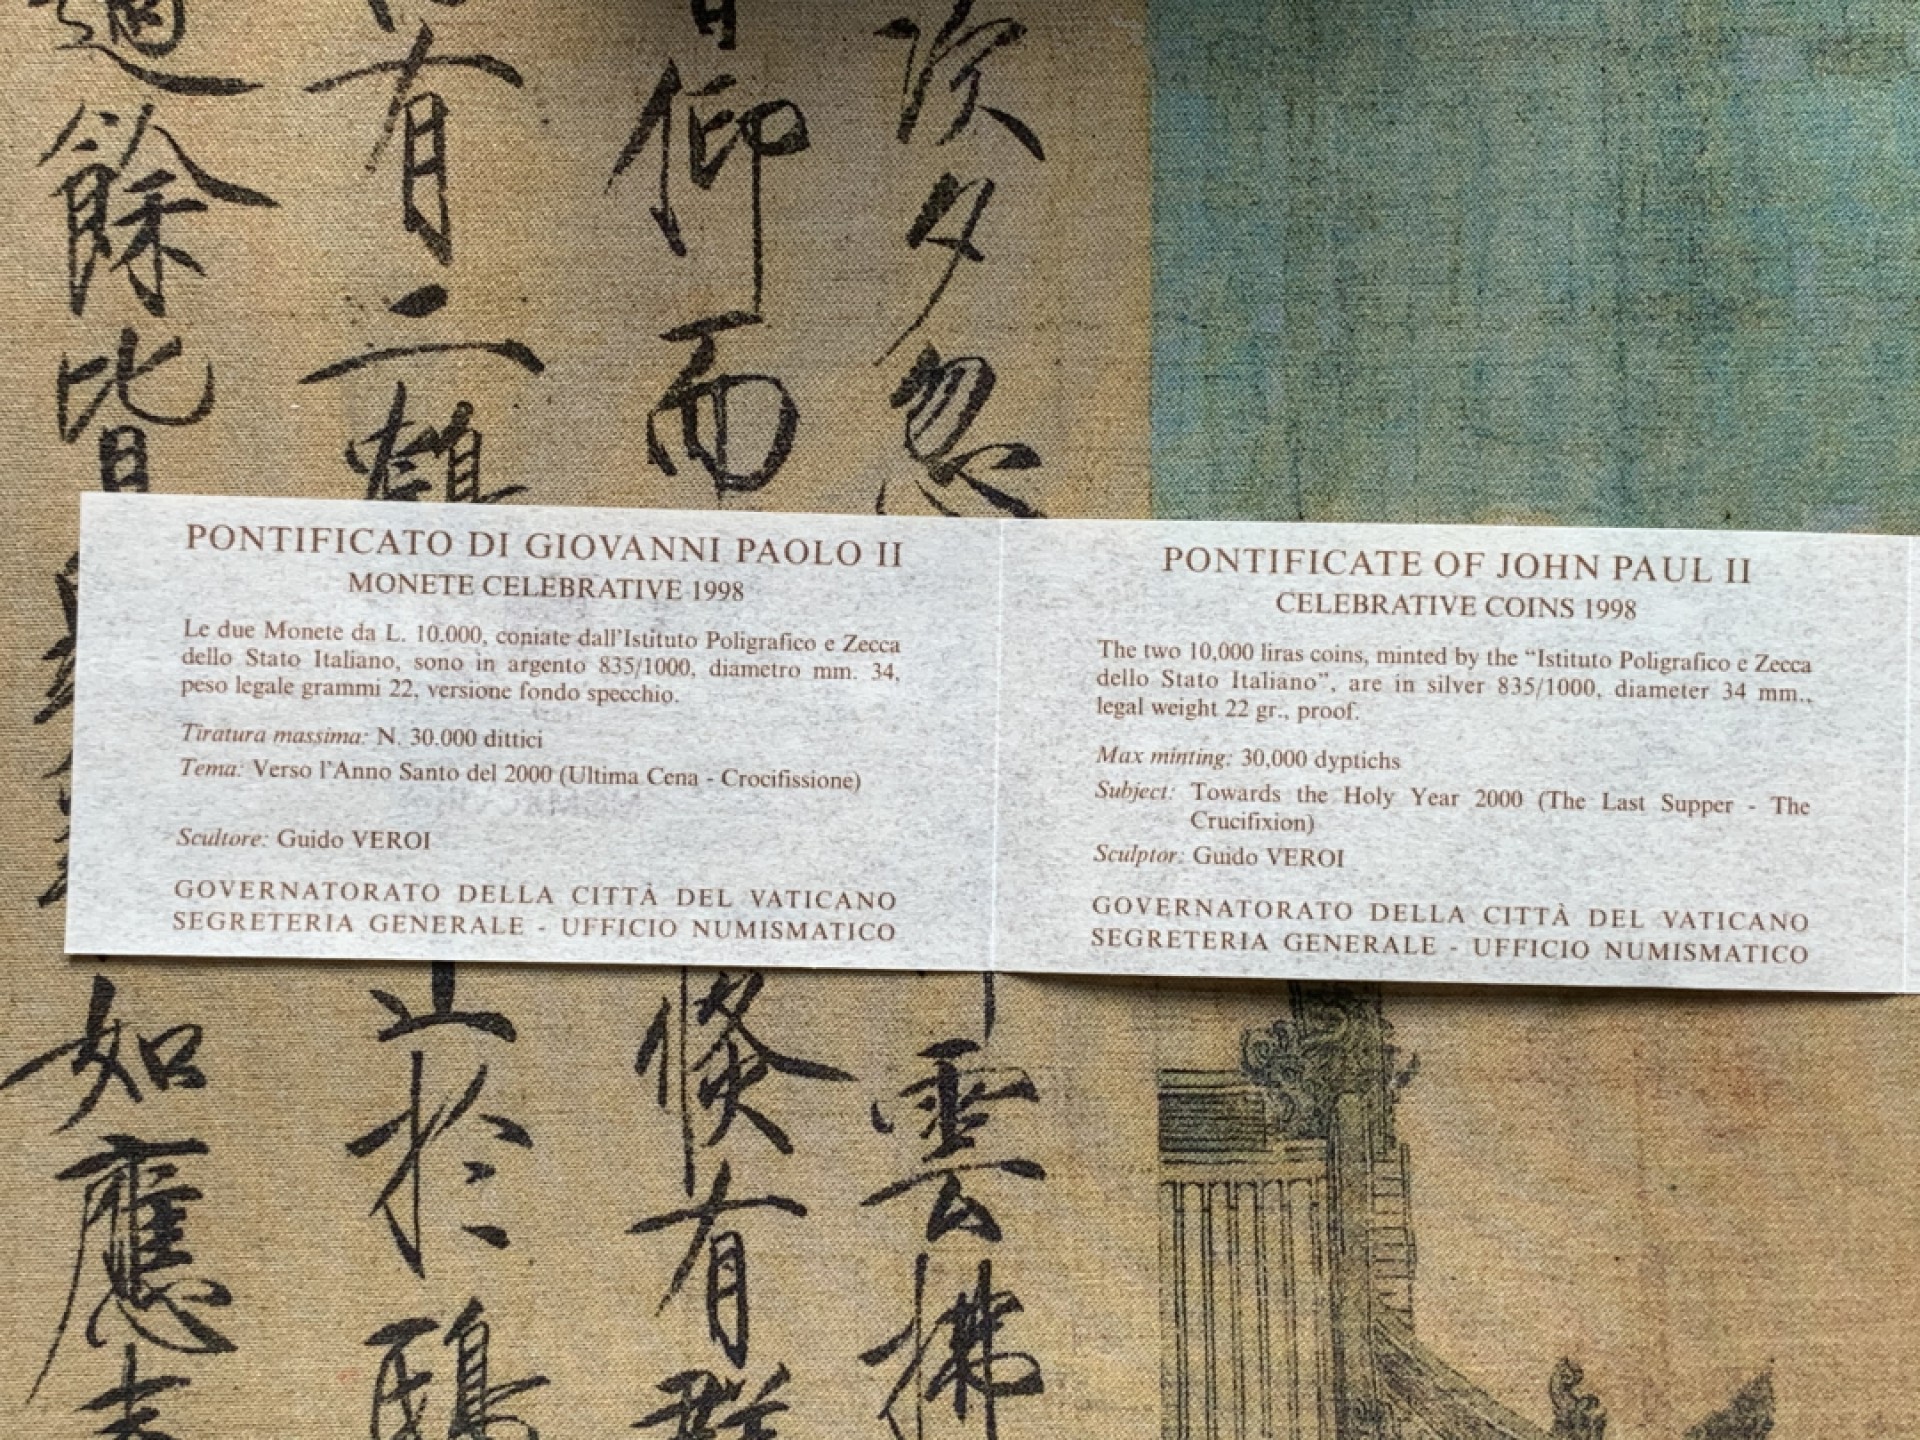 次夕忽
仰而
有二鶴
適餘皆
PONTIFICATO DI GIOVANNI PAOLO II
MONETE CELEBRATIVE 1998
Le due Monete da L. 10.000, coniate dall'Istituto Poligrafico e Zecca
dello Stato Italiano, sono in argento 835/1000, diametro mm. 34,
peso legale grammi 22, versione fondo specchio.
Tiratura massima: N. 30.000 dittici
Tema: Verso l'Anno Santo del 2000 (Ultima Cena - Crocifissione)
Scultore: Guido VEROI
GOVERNATORATO DELLA CITTÀ DEL VATICANO
SEGRETERIA GENERALE - UFFICIO NUMISMATICO
PONTIFICATE OF JOHN PAUL II
CELEBRATIVE COINS 1998
The two 10,000 liras coins, minted by the “Istituto Poligrafico e Zecca
dello Stato Italiano”, are in silver 835/1000, diameter 34 mm.,
legal weight 22 gr., proof.
Max minting: 30,000 dyptichs
Subject: Towards the Holy Year 2000 (The Last Supper - The
Crucifixion)
Sculptor: Guido VEROI
GOVERNATORATO DELLA CITTÀ DEL VATICANO
SEGRETERIA GENERALE - UFFICIO NUMISMATICO
雲拂
倏有群
止於鴟
如應